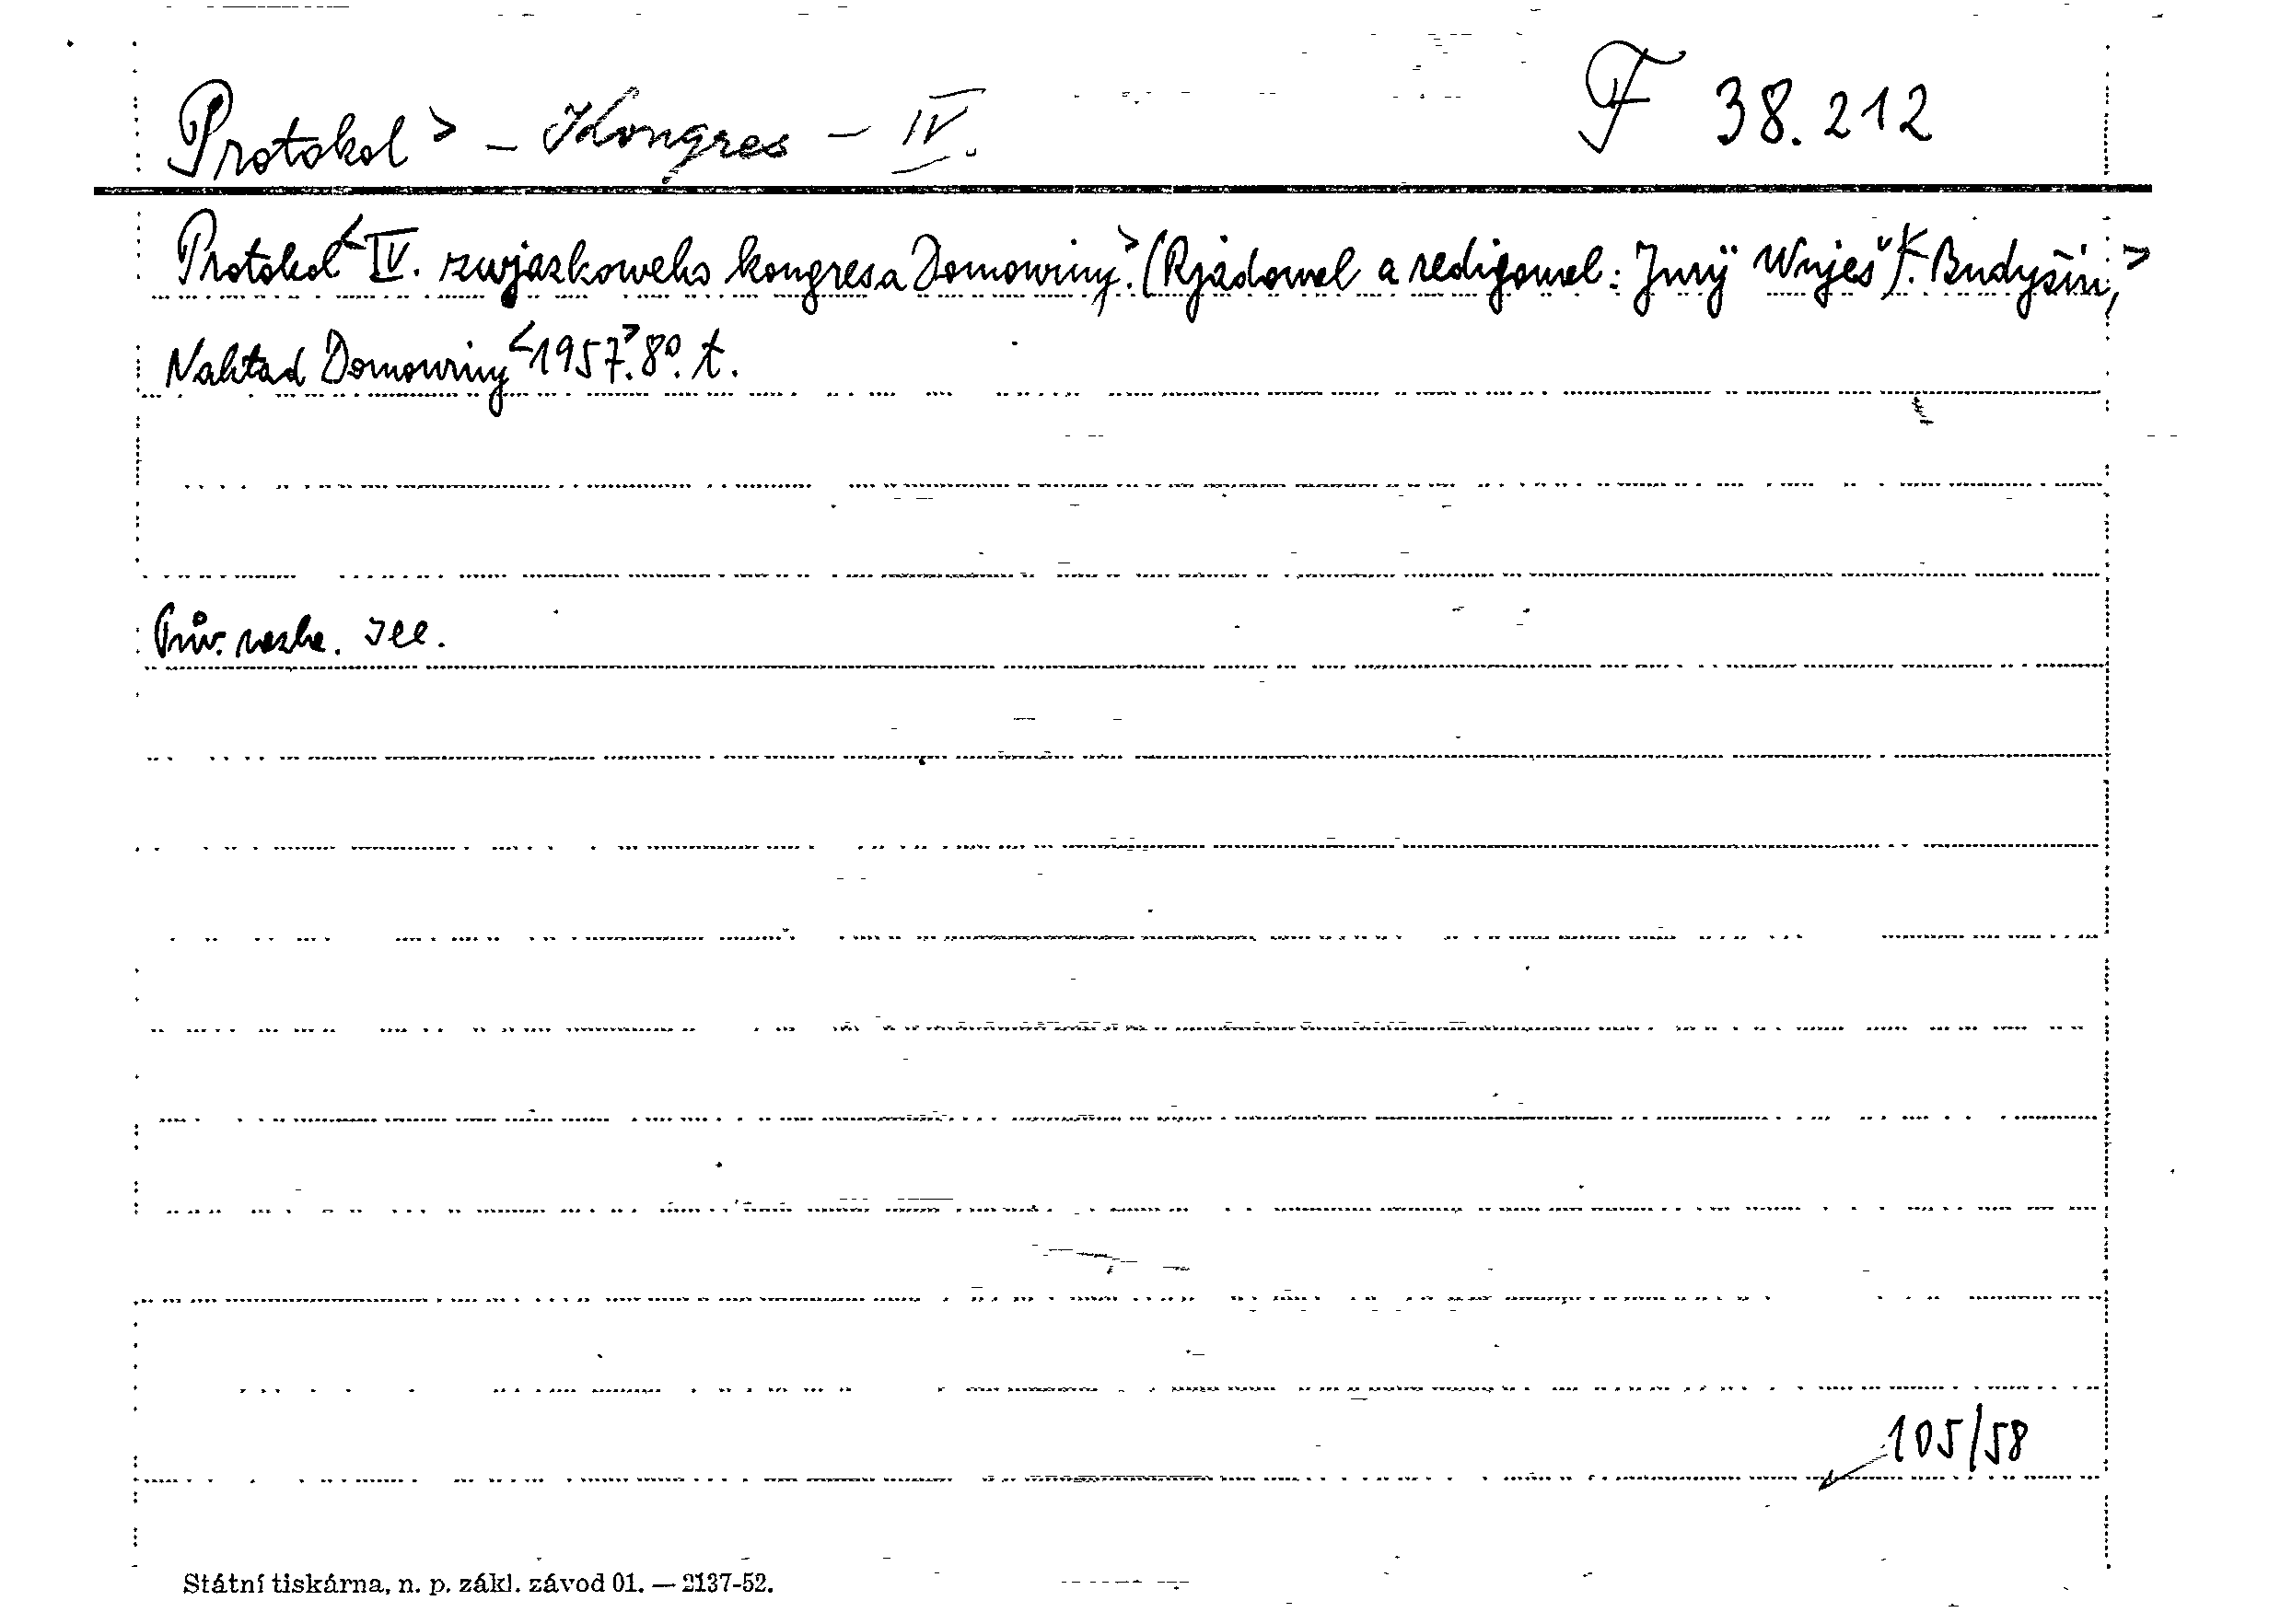 Protokol > – Kongres – IV. F 38.212
Protokol < IV. zwjazkoweho kongresa Domowiny.> (Rjadowal a redigowal: Jurij Wuješ). < Budyšin, >
Nakład Domowiny < 1957.> 8°. t.
Prův. Ill.
105/58
Státní tiskárna, n. p. zákl. závod 01. — 2137-52.